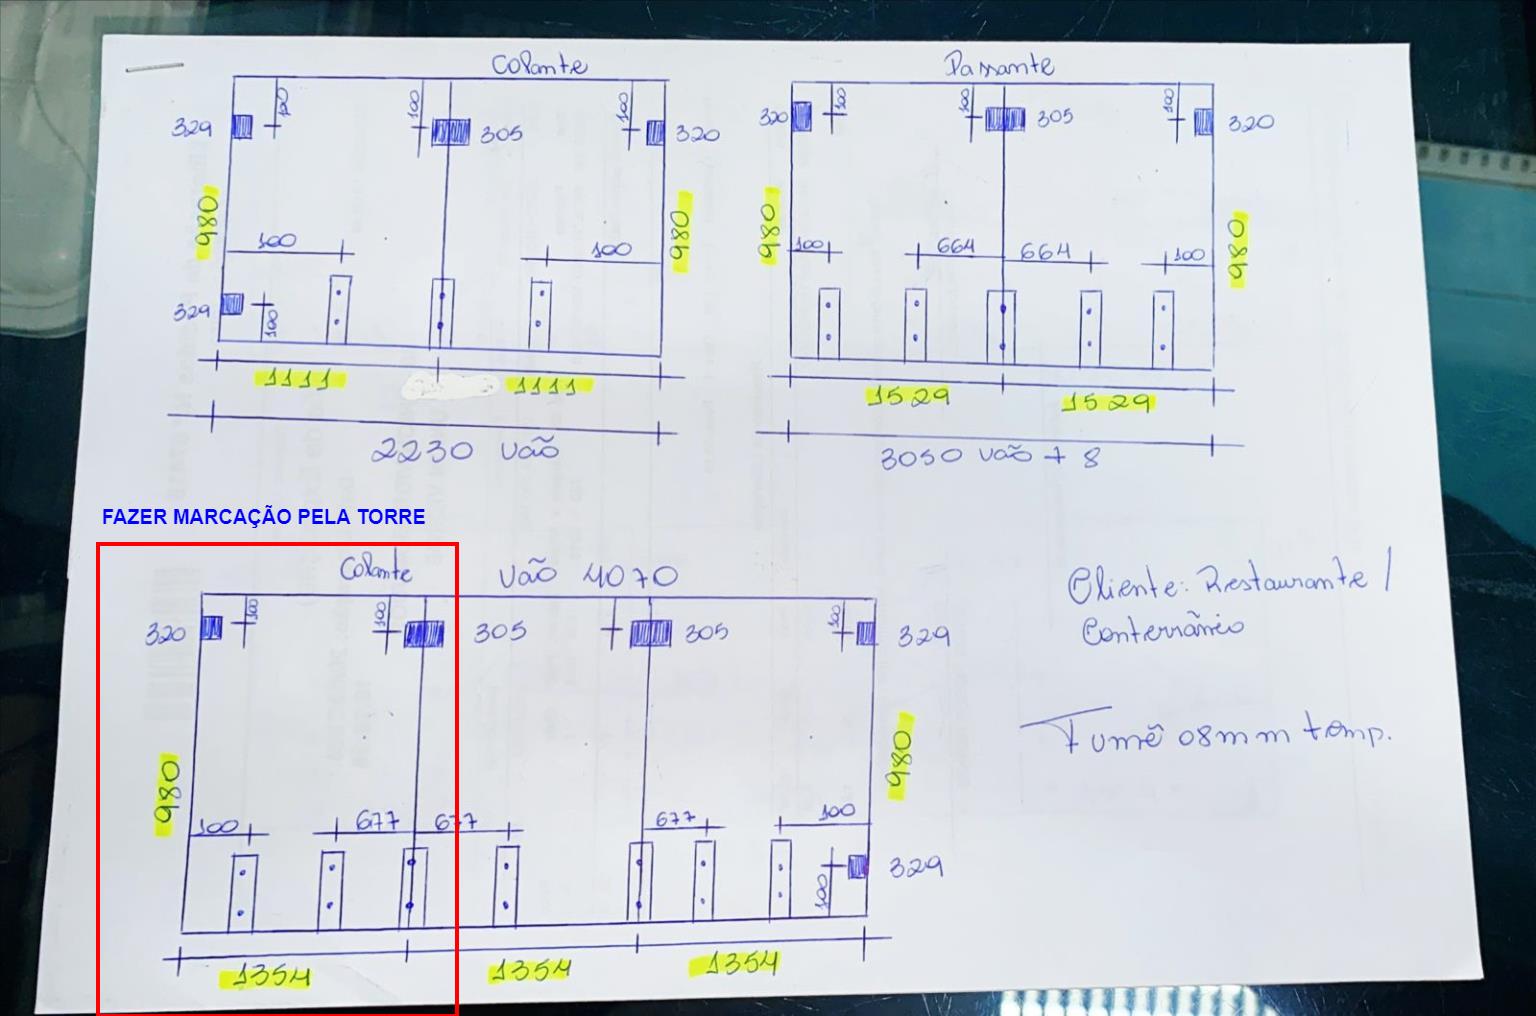 Colante
100 100 100
329 305 320
980 980
100 100
329 100
1111 1111
2230 vão
Passante
100 100 100
320 305 320
980 980
100 664 664 100
1529 1529
3050 vão + 8
FAZER MARCAÇÃO PELA TORRE
Colante vão 4070
100 100 100
320 305 305 329
980 980
100 677 677 677 100
100 329
1354 1354 1354
Cliente: Restaurante /
Conterrâneo
Fumê 08mm temp.